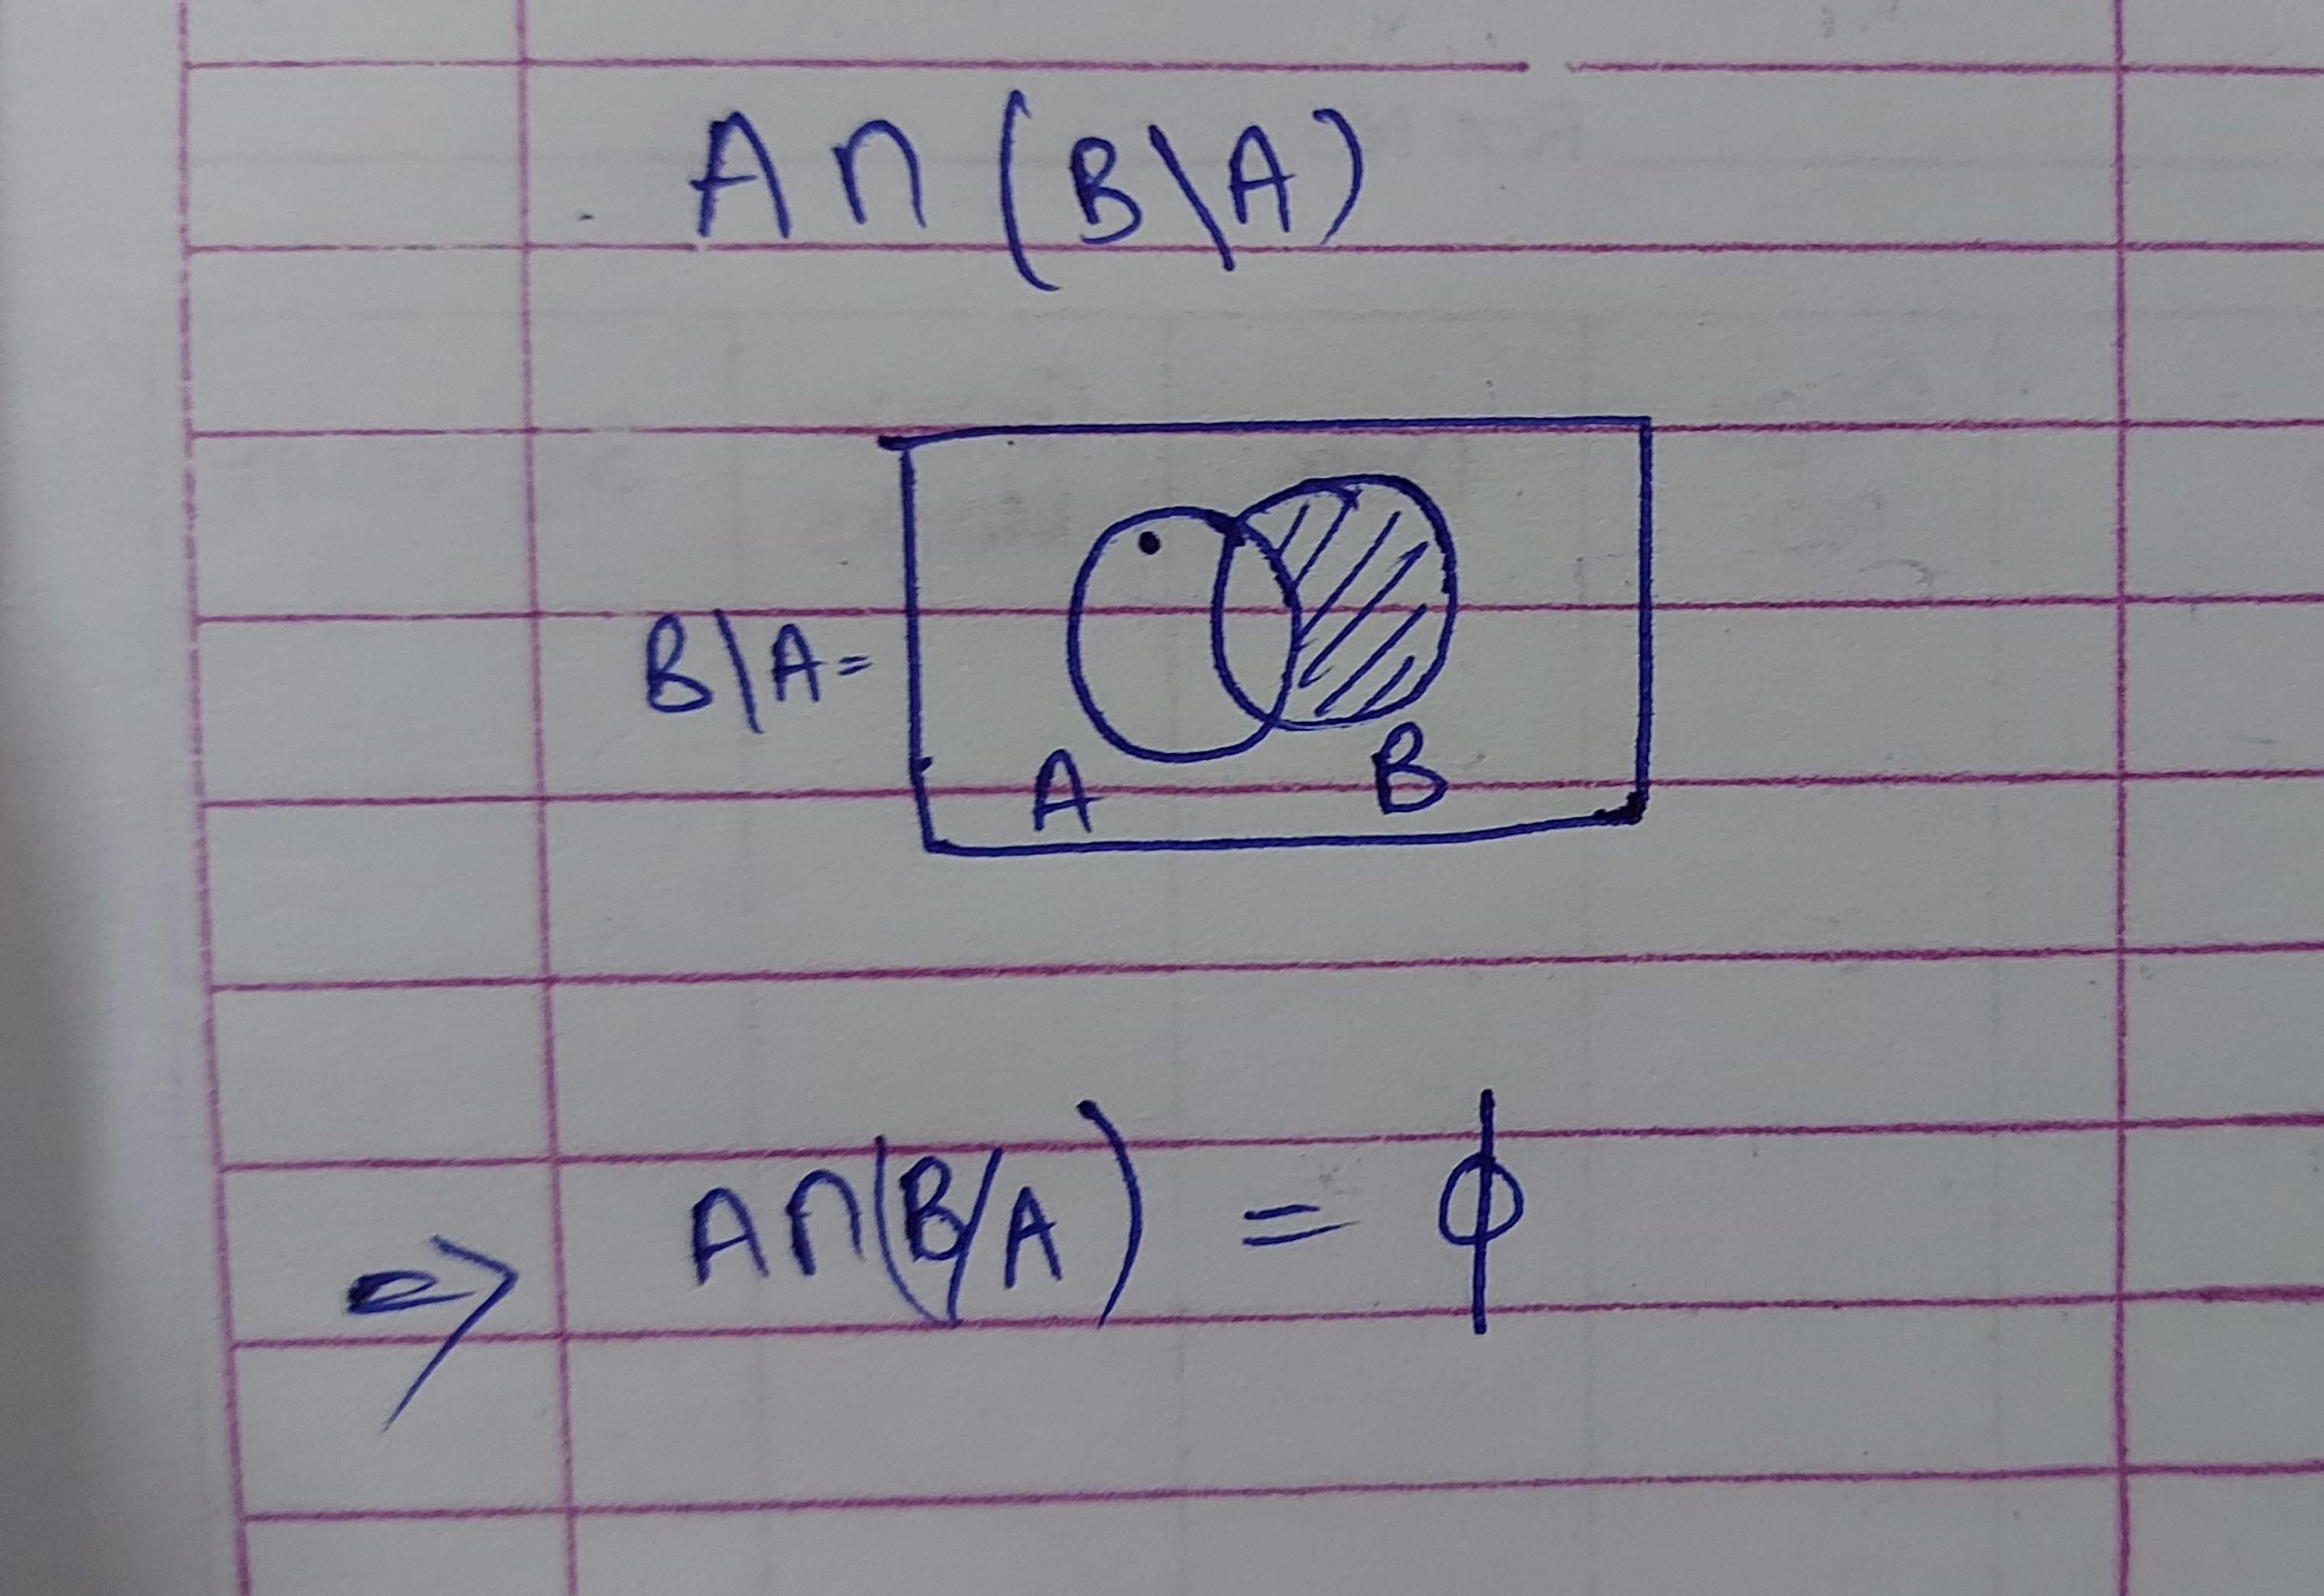 A ∩ (B\A)
B\A =
A B
⇒ A∩(B/A) = ϕ